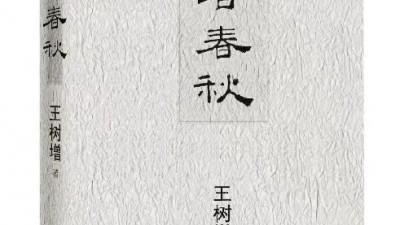 春秋
王树增 著
春秋
王树